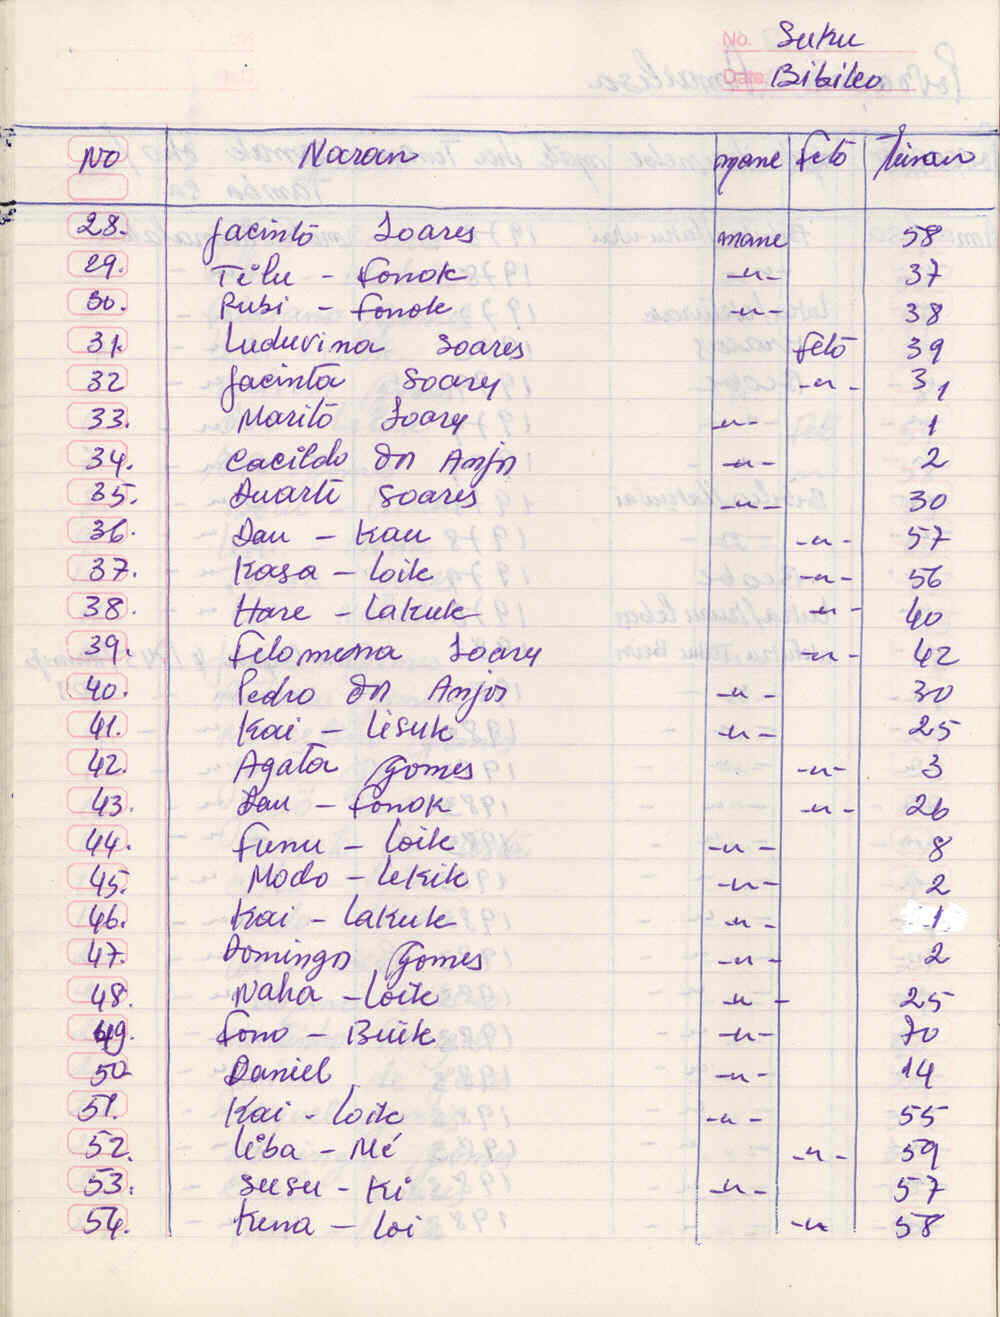 No. Suku
Date. Bibileo
No Naran mane feto Tinan
28. Jacinto Soares mane 58
29. Telu - Fonok -"- 37
30. Rubi - Fonok -"- 38
31. Luduvina Soares feto 39
32 Jacinta Soares -"- 31
33. Marito Soares -"- 1
34. Cacildo dos Anjos -"- 2
35. Duarte Soares -"- 30
36. Dau - Kau -"- 57
37. Kasa - Loik -"- 56
38. Hare - Lakuk -"- 40
39. Felomena Soares -"- 42
40. Pedro dos Anjos -"- 30
41. Kai - Lesuk -"- 25
42. Agata Gomes -"- 3
43. Dau - Fonok -"- 26
44. Funu - Loik -"- 8
45. Modo - Lekik -"- 2
46. Kai - Lakuk -"- 1
47. Domingos Gomes -"- 2
48. Naha - Loik -"- 25
49. Fono - Buik -"- 70
50 Daniel -"- 14
51. Kai - Loik -"- 55
52. Leba - Mé -"- 59
53. Susu - Ki -"- 57
54. Kena - Loi -"- 58